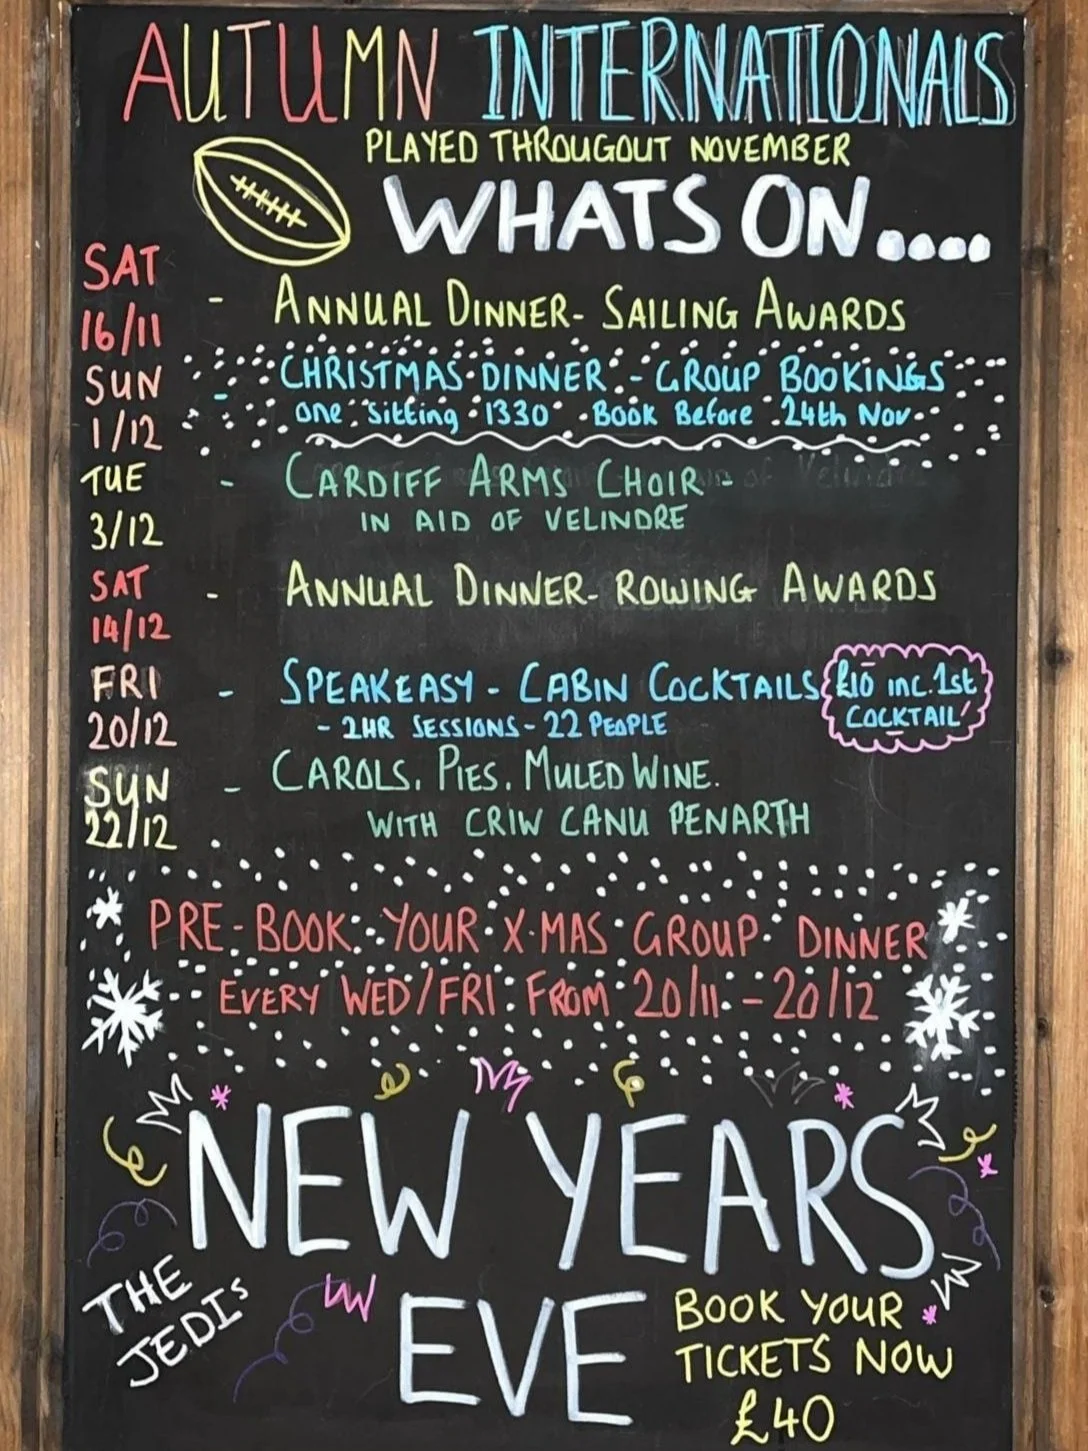 AUTUMN INTERNATIONALS
PLAYED THROUGOUT NOVEMBER
WHATS ON....
SAT
16/11 - ANNUAL DINNER- SAILING AWARDS
SUN
1/12 - CHRISTMAS DINNER - GROUP BOOKINGS
one sitting 1330 Book Before 24th Nov
TUE
3/12 - CARDIFF ARMS CHOIR -
IN AID OF VELINDRE
SAT
14/12 - ANNUAL DINNER- ROWING AWARDS
FRI
20/12 - SPEAKEASY - CABIN COCKTAILS
- 2HR SESSIONS - 22 PEOPLE
£10 inc. 1st
COCKTAIL
SUN
22/12 - CAROLS. PIES. MULED WINE.
WITH CRIW CANU PENARTH
PRE-BOOK YOUR X-MAS GROUP DINNER
EVERY WED/FRI FROM 20/11 - 20/12
NEW YEARS
EVE
THE
JEDIs
BOOK YOUR
TICKETS NOW
£40